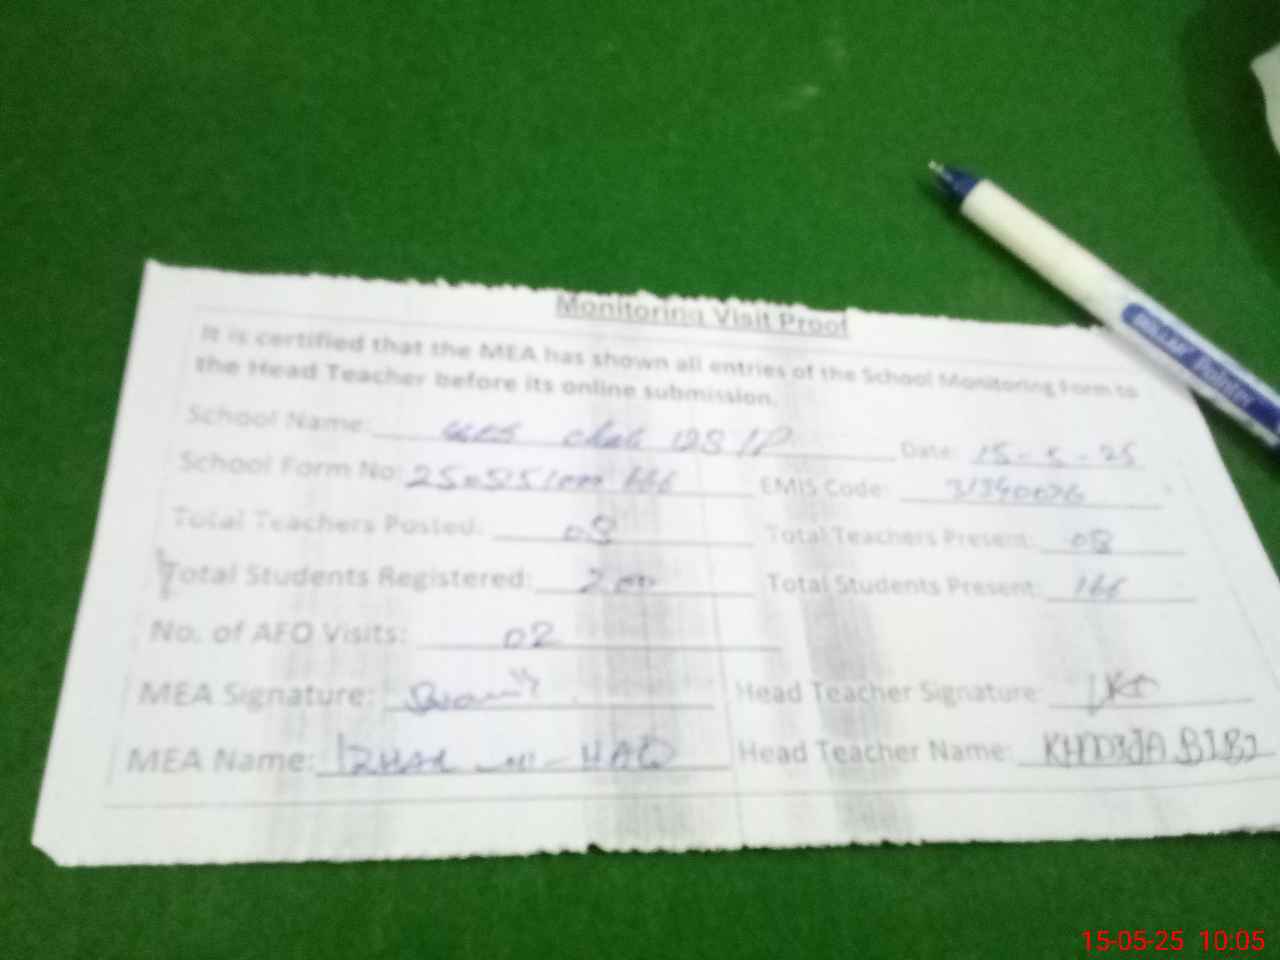 Monitoring Visit Proof
It is certified that the MEA has shown all entries of the School Monitoring Form to
the Head Teacher before its online submission.
School Name: 12S/P Date: 15-5-25
School Form No: EMIS Code:
Total Teachers Posted: 08 Total Teachers Present: 08
Total Students Registered: 200 Total Students Present: 166
No. of AEO Visits: 02
MEA Signature: Head Teacher Signature:
MEA Name: HAQ Head Teacher Name: BIBI
Pointer
15-05-25 10:05